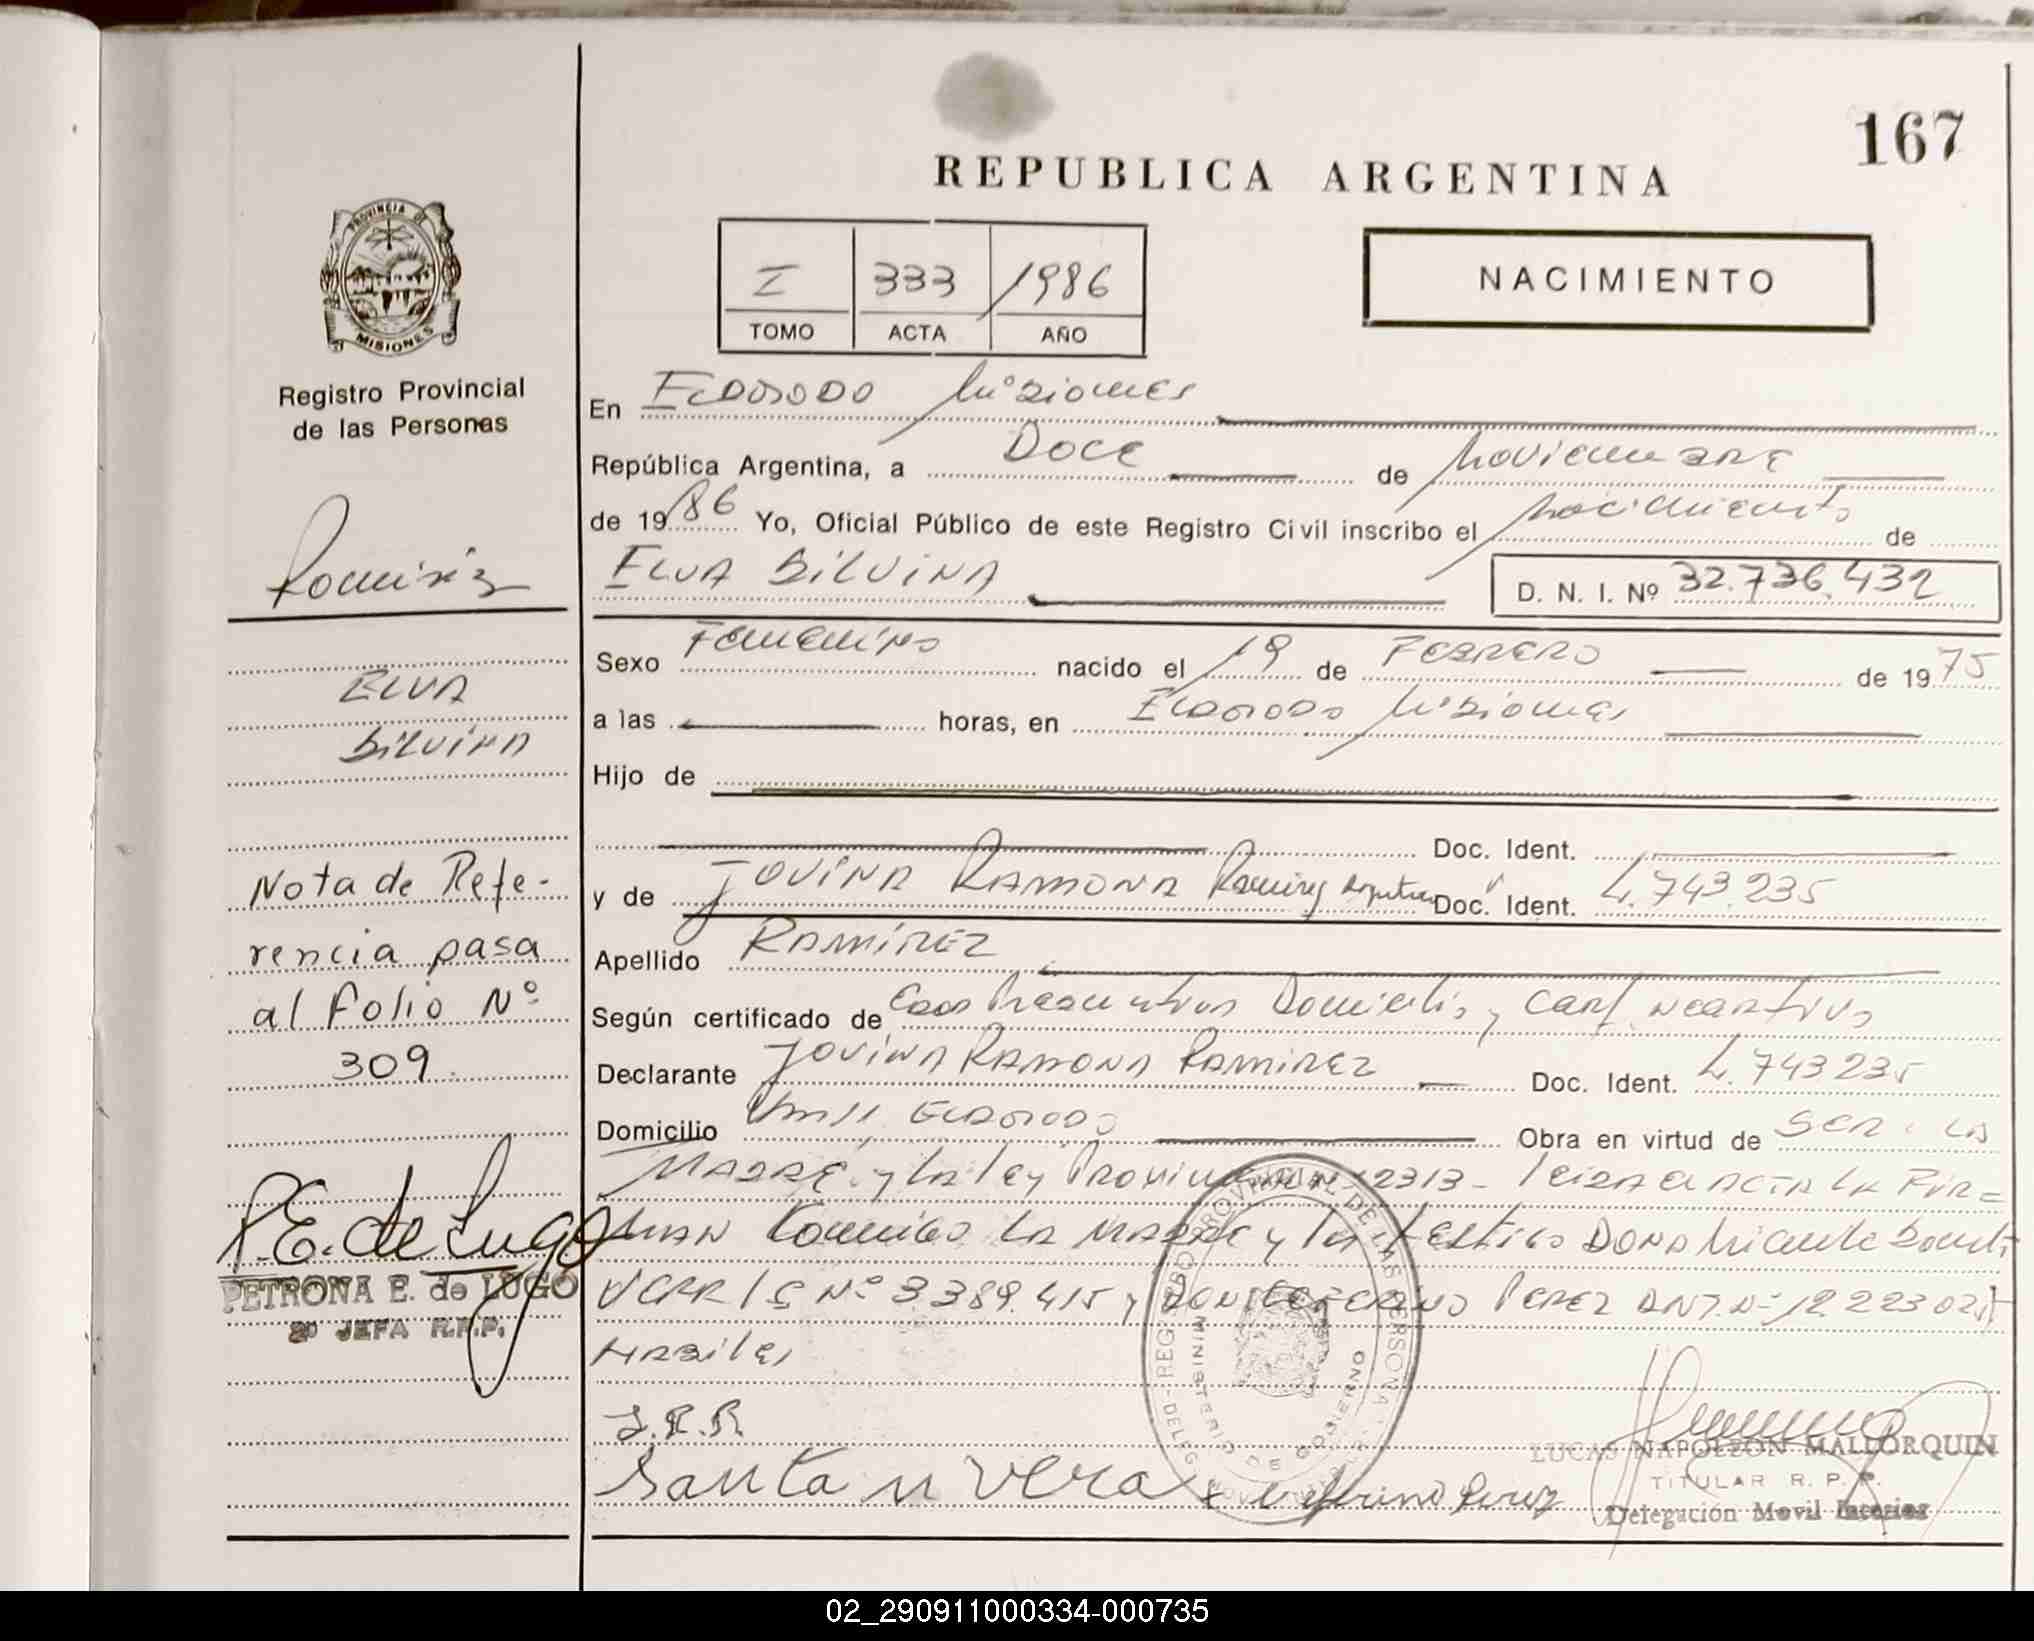 167
REPUBLICA ARGENTINA
PROVINCIA DE
MISIONES
I 333 1986
TOMO ACTA AÑO
NACIMIENTO
Registro Provincial
de las Personas
En ELDORADO Misiones
República Argentina, a DOCE de Noviembre
de 1986 Yo, Oficial Público de este Registro Civil inscribo el Nacimiento de
ELVA SILVINA D. N. I. Nº 32.736.432
Ramirez
Sexo FEMENINO nacido el 19 de FEBRERO de 1975
ELVA
a las horas, en ELDORADO Misiones
SILVINA
Hijo de
Doc. Ident.
y de JOVINA RAMONA Ramirez Argentina Doc. Ident. 4.743.235
Nota de Refe-
Apellido RAMIREZ
rencia pasa
Según certificado de Domicilio, y CERT. NEGATIVO
al Folio Nº
Declarante JOVINA RAMONA RAMIREZ Doc. Ident. 4.743235
309.
Domicilio ELDORADO Obra en virtud de SER LA
MADRE y la ley Provincial Nº 2313 - ACTA LA FIR=
MAN Conmigo LA MADRE y los testigos DOÑA
VERA Nº 3.389.415 y DON CEFERINO PEREZ DNI. Nº 12.223025
HABILES
P.E. de Lugo
PETRONA E. de LUGO
2º JEFA R.P.P.
J.R.R.
Santa n vera
Ceferino Perez
REGISTRO PROVINCIAL DE LAS PERSONAS
MINISTERIO DE GOBIERNO
LUCAS NAPOLEON MALLORQUIN
TITULAR R. P. P.
Delegación Movil
02_290911000334-000735